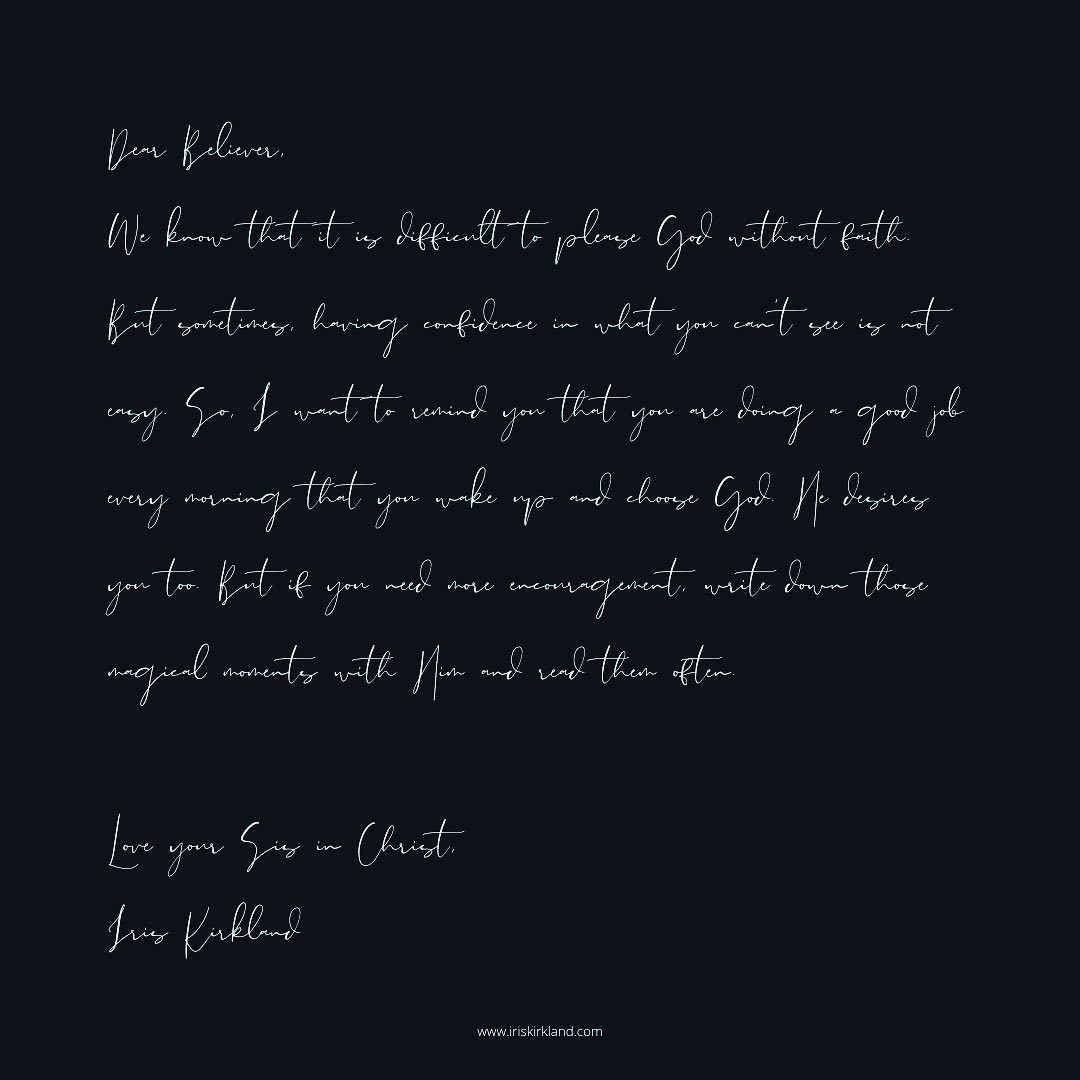 Dear Believer,
We know that it is difficult to please God without faith.
But sometimes, having confidence in what you can't see is not
easy. So, I want to remind you that you are doing a good job
every morning that you wake up and choose God. He desires
you too. But if you need more encouragement, write down those
magical moments with Him and read them often.
Love your Sis in Christ,
Iris Kirkland
www.iriskirkland.com